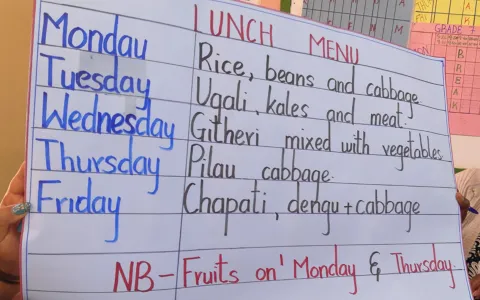 LUNCH MENU
Monday Rice, beans and cabbage
Tuesday Ugali, kales and meat.
Wednesday Githeri mixed with vegetables
Thursday Pilau cabbage.
Friday Chapati, dengu + cabbage
NB - Fruits on' Monday & Thursday
GRADE
BREAK